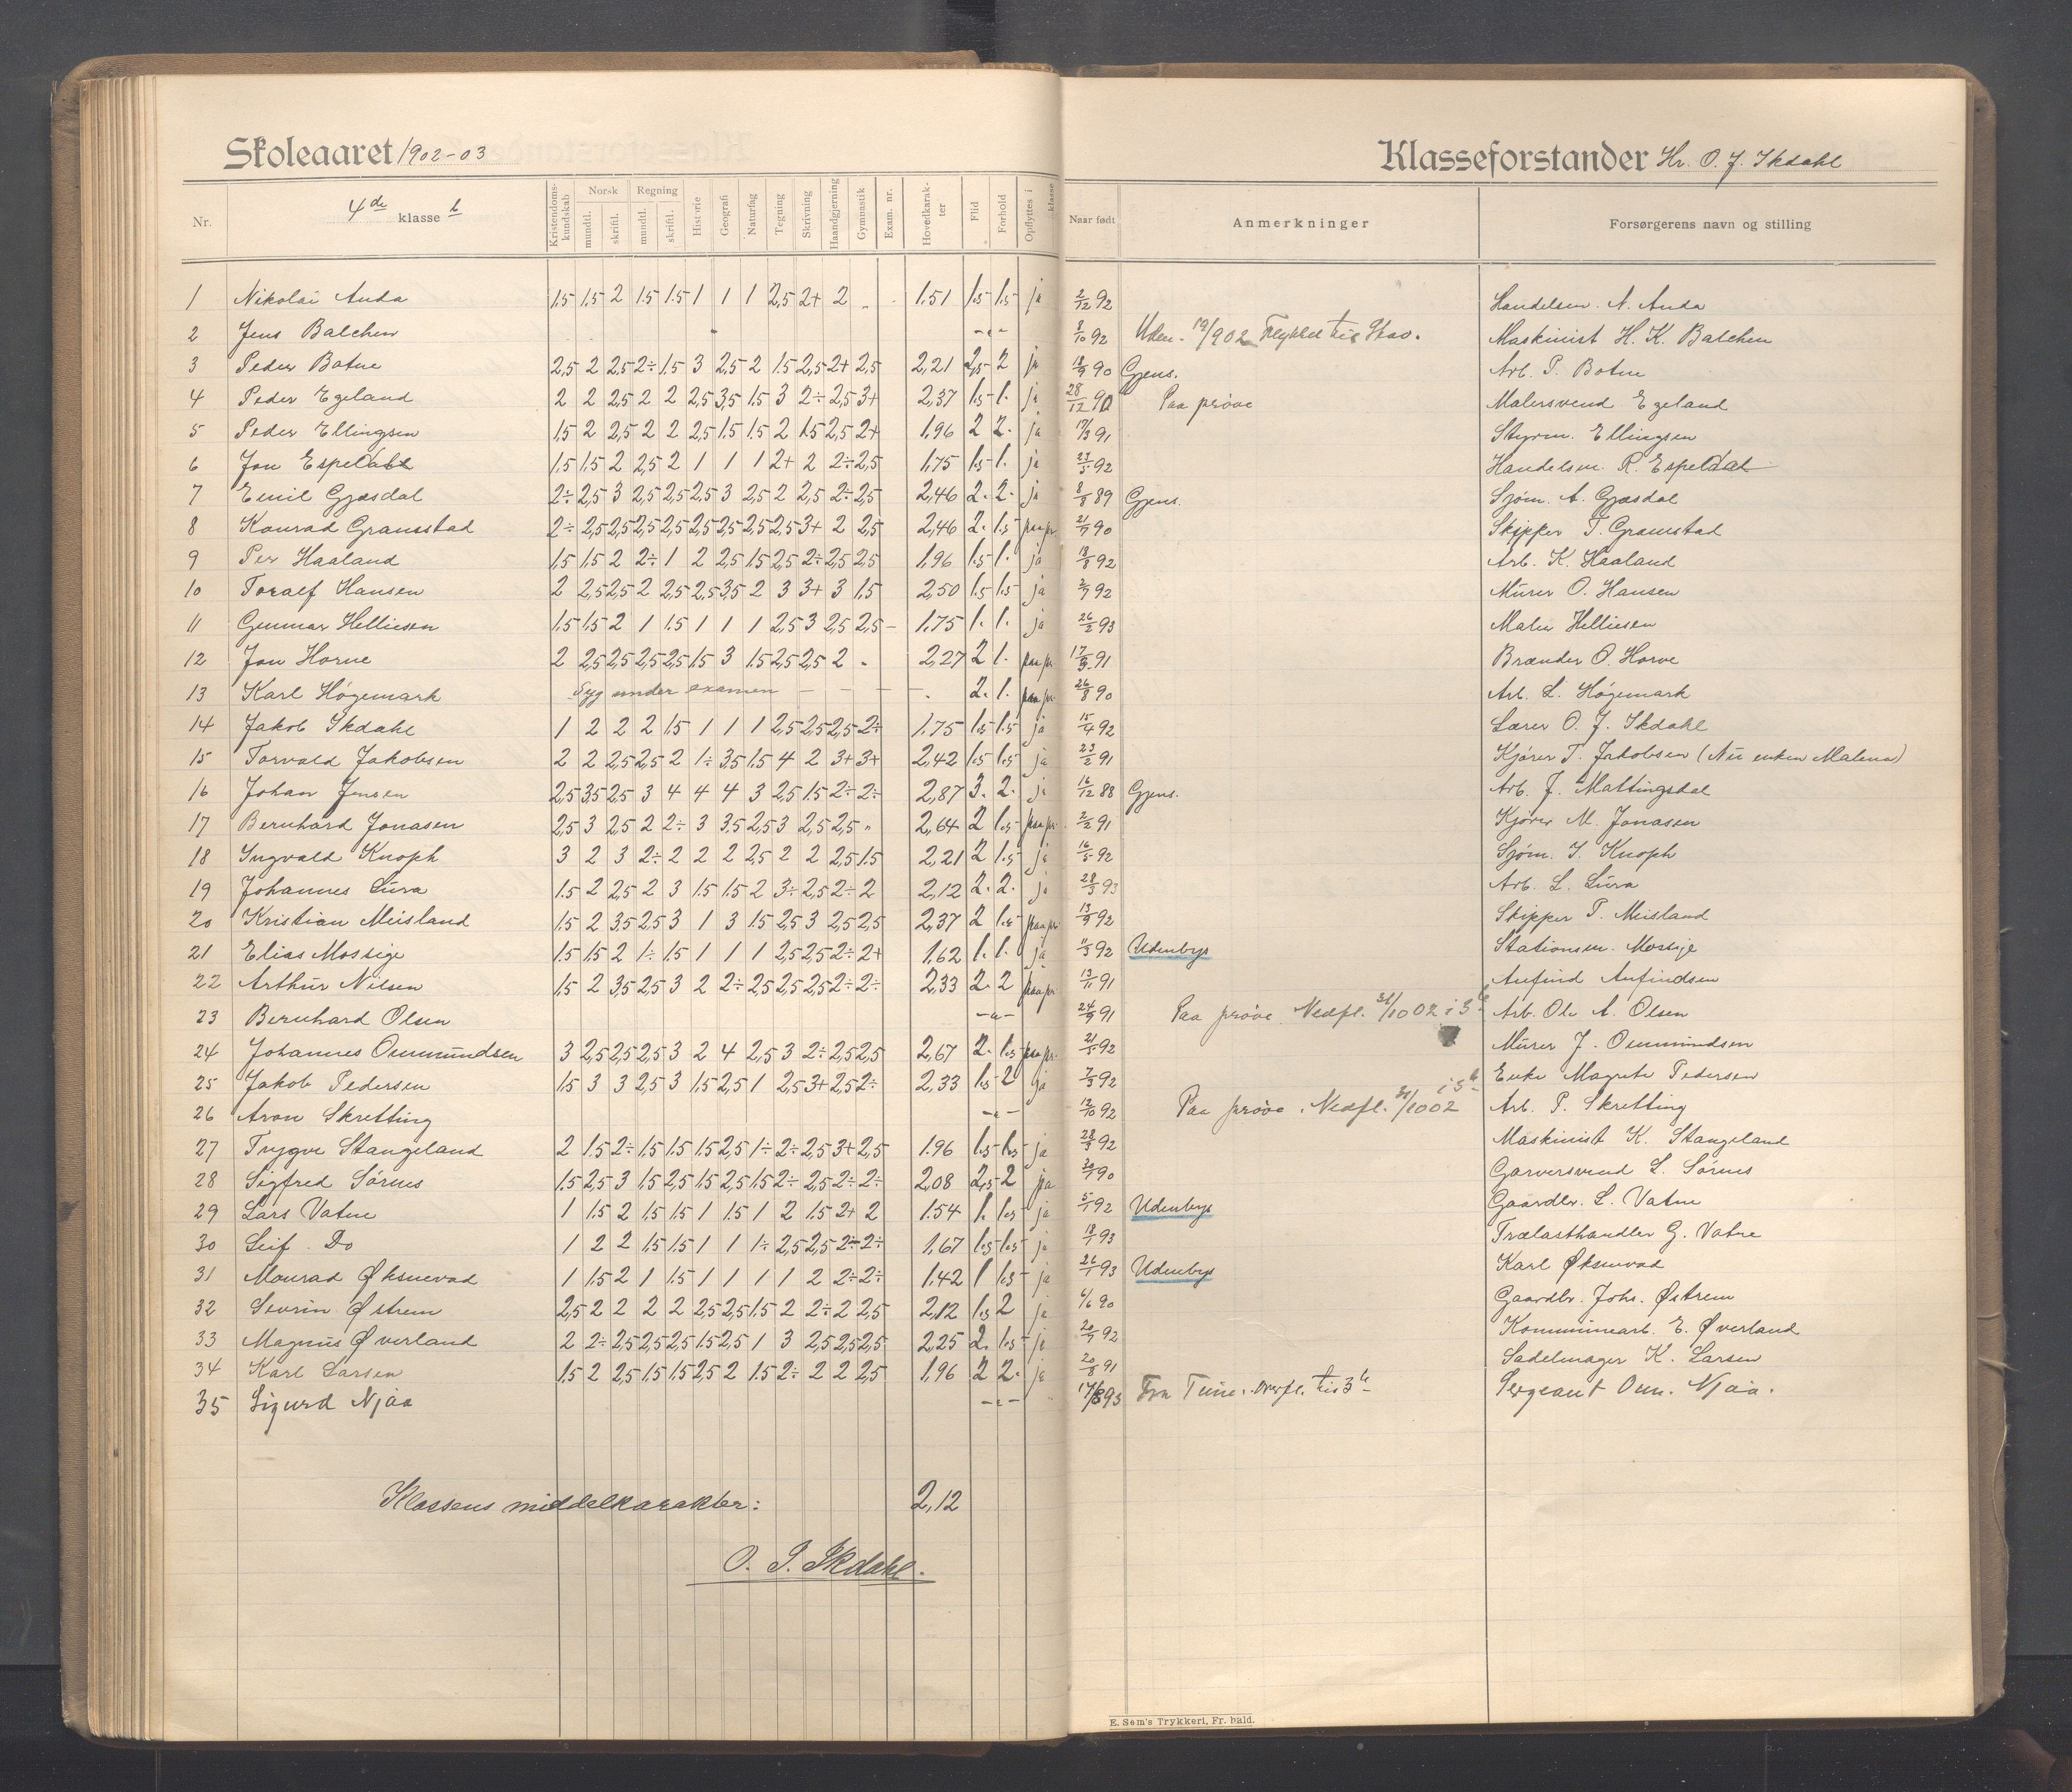 Skoleaaret 1902-03
Klasseforstander Hr. O. J. Skdahl
Nr. 4de klasse b Kristendoms-kundskab Norsk mundtl. skriftl. Regning mundtl. skriftl. Historie Geografi Naturfag Tegning Skrivning Haandgjerning Gymnastik Exam. nr. Hovedkarak-ter Flid Forhold Opflyttes i klasse Naar født Anmerkninger Forsørgerens navn og stilling
1 Nikolai Anda 1.5 1.5 2 1.5 1.5 1 1 1 2,5 2+ 2 „ 1.51 1.5 1.5 ja 2/12 92 Handelsm. N. Anda
2 Jens Balchen 8/10 92 Uden. 19/902 Flyttet til Stav. Maskinist H. K. Balchen
3 Peder Botne 2,5 2 2,5 2÷ 1.5 3 2,5 2 1.5 2,5 2+ 2,5 2,21 2,5 2 ja 18/9 90 Gjens. Arb. P. Botne
4 Peder Egeland 2 2 2,5 2 2 2,5 3,5 1.5 3 2÷ 2,5 3+ 2,37 1.5 1. ja 28/12 90 Paa prøve Malersvend Egeland
5 Peder Ellingsen 1.5 2 2,5 2 2 2,5 1.5 1.5 2 1.5 2,5 2+ 1.96 2 2. ja 17/3 91 Styrm. Ellingsen
6 Jon Espedal 1.5 1.5 2 2,5 2 1 1 1 2+ 2 2÷ 2,5 1.75 1.5 1. ja 23/5 92 Handelsm. R. Espedal
7 Emil Gjæsdal 2÷ 2,5 3 2,5 2,5 2,5 3 2,5 2 2,5 2÷ 2,5 2,46 2. 2. ja 8/8 89 Gjens. Sjøm. A. Gjæsdal
8 Konrad Gramstad 2÷ 2,5 2,5 2,5 2,5 2,5 2,5 2,5 2,5 3+ 2 2,5 2,46 2. 1.5 paa pr. 21/7 90 Skipper T. Gramstad
9 Per Haaland 1.5 1.5 2 2÷ 1 2 2,5 1.5 2,5 2÷ 2,5 2,5 1.96 1.5 1. ja 18/8 92 Arb. K. Haaland
10 Toralf Hansen 2 2,5 2,5 2 2,5 2,5 3,5 2 3 3+ 3 1.5 2,50 1.5 1.5 ja 2/7 92 Murer O. Hansen
11 Gunnar Helliesen 1.5 1.5 2 1 1.5 1 1 1 2,5 3 2,5 2,5 – 1.75 1. 1. ja 26/2 93 Maler Helliesen
12 Jon Horve 2 2,5 2,5 2,5 2,5 1.5 3 1.5 2,5 2,5 2 „ 2,27 2 1. paa pr. 17/9 91 Brænder O. Horve
13 Karl Høgemark Syg under examen – – – 2. 1. paa pr. 26/8 90 Arb. L. Høgemark
14 Jakob Skdahl 1 2 2 2 1.5 1 1 1 2,5 2,5 2,5 2÷ 1.75 1.5 1.5 ja 15/4 92 Lærer O. J. Skdahl
15 Torvald Jakobsen 2 2 2,5 2,5 2 1÷ 3,5 1.5 4 2 3+ 3+ 2,42 1.5 1.5 ja 23/2 91 Kjører T. Jakobsen (Nu enken Malena)
16 Johan Jensen 2,5 3,5 2,5 3 4 4 4 3 2,5 1.5 2÷ 2÷ 2,87 3. 2. ja 16/12 88 Gjens. Arb. J. Mattingsdal
17 Bernhard Jonasen 2,5 3 2,5 2 2÷ 3 3.5 2,5 3 2,5 2,5 „ 2,64 2 1.5 paa pr. 2/2 91 Kjører M. Jonasen
18 Ingvald Knoph 3 2 3 2÷ 2 2 2 2,5 2 2 2,5 1.5 2,21 2 1.5 ja 16/5 92 Sjøm. I. Knoph
19 Johannes Lura 1.5 2 2,5 2 3 1.5 1.5 2 3÷ 2,5 2÷ 2 2,12 2. 2. ja 28/3 93 Arb. L. Lura
20 Kristian Meisland 1.5 2 3.5 2,5 3 1 3 1.5 2,5 3 2,5 2,5 2,37 2 1.5 paa pr. 13/9 92 Skipper P. Meisland
21 Elias Mossige 1.5 1.5 2 1÷ 1.5 1 1 1 2,5 2,5 2÷ 2+ 1.62 1. 1. ja 11/3 92 Udenbys Stationsm. Mossige
22 Arthur Nilsen 1.5 2 3,5 2,5 3 2 2÷ 2,5 2,5 2,5 2÷ 2÷ 2,33 2. 2 paa pr. 13/11 91 Anfind Anfindsen
23 Bernhard Olsen 24/9 91 Paa prøve Nedfl. 31/10 02 i 3b Arb. Ole A. Olsen
24 Johannes Ommundsen 3 2,5 2,5 2,5 3 2 4 2,5 3 2÷ 2,5 2,5 2,67 2. 1.5 paa pr. 21/5 92 Murer J. Ommundsen
25 Jakob Pedersen 1.5 3 3 2,5 3 1.5 2,5 1 2,5 3+ 2,5 2÷ 2,33 1.5 2 ja 7/3 92 Enke Magrete Pedersen
26 Aron Skretting 12/10 92 Paa prøve. Nedfl. 31/10 02 i 3b Arb. P. Skretting
27 Trygve Stangeland 2 1.5 2÷ 1.5 1.5 1.5 2,5 1÷ 2÷ 2,5 3+ 2,5 1.96 1.5 1.5 ja 28/3 92 Maskinist K. Stangeland
28 Sigfred Sørnes 1.5 2,5 3 1.5 2,5 1.5 2,5 1.5 2÷ 2,5 2÷ 2÷ 2,08 2,5 2 ja 30/7 90 Garversvend L. Sørnes
29 Lars Vatne 1 1.5 2 1.5 1.5 1 1.5 1 2 1.5 2+ 2 1.54 1. 1.5 ja 5/1 92 Udenbys Gaardbr. L. Vatne
30 Leif Do 1 2 2 1.5 1.5 1 1 1÷ 2,5 2,5 2÷ 2÷ 1,67 1.5 1.5 ja 18/1 93 Trælasthandler G. Vatne
31 Monrad Øksnevad 1 1.5 2 1 1.5 1 1 1 1 2 2÷ 2÷ 1.42 1 1.5 ja 26/1 93 Udenbys Karl Øksnevad
32 Sevrin Østrem 2,5 2 2 2 2 2,5 2,5 1.5 2 2÷ 2 2,5 2,12 1.5 2 ja 6/6 90 Gaardbr. Johs. Østrem
33 Magnus Øverland 2 2÷ 2,5 2,5 2,5 1.5 2,5 1 3 2,5 2,5 2,5 2,25 2. 1.5 ja 20/7 92 Kommunearb. E. Øverland
34 Karl Larsen 1.5 2 2,5 1.5 1.5 2,5 2 1.5 2÷ 2 2 2,5 1,96 2 2. ja 20/8 91 Sadelmager K. Larsen
35 Sigurd Njaa 17/8 93 Fra Time. Overfl. til 3b Sergeant Om. Njaa.
Klassens middelkarakter: 2,12
O. J. Skdahl.
E. Sem's Trykkeri, Fr. hald.